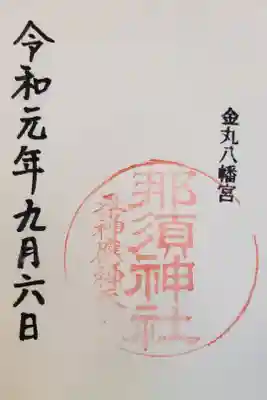 金丸八幡宮
那須神社
令和元年九月六日